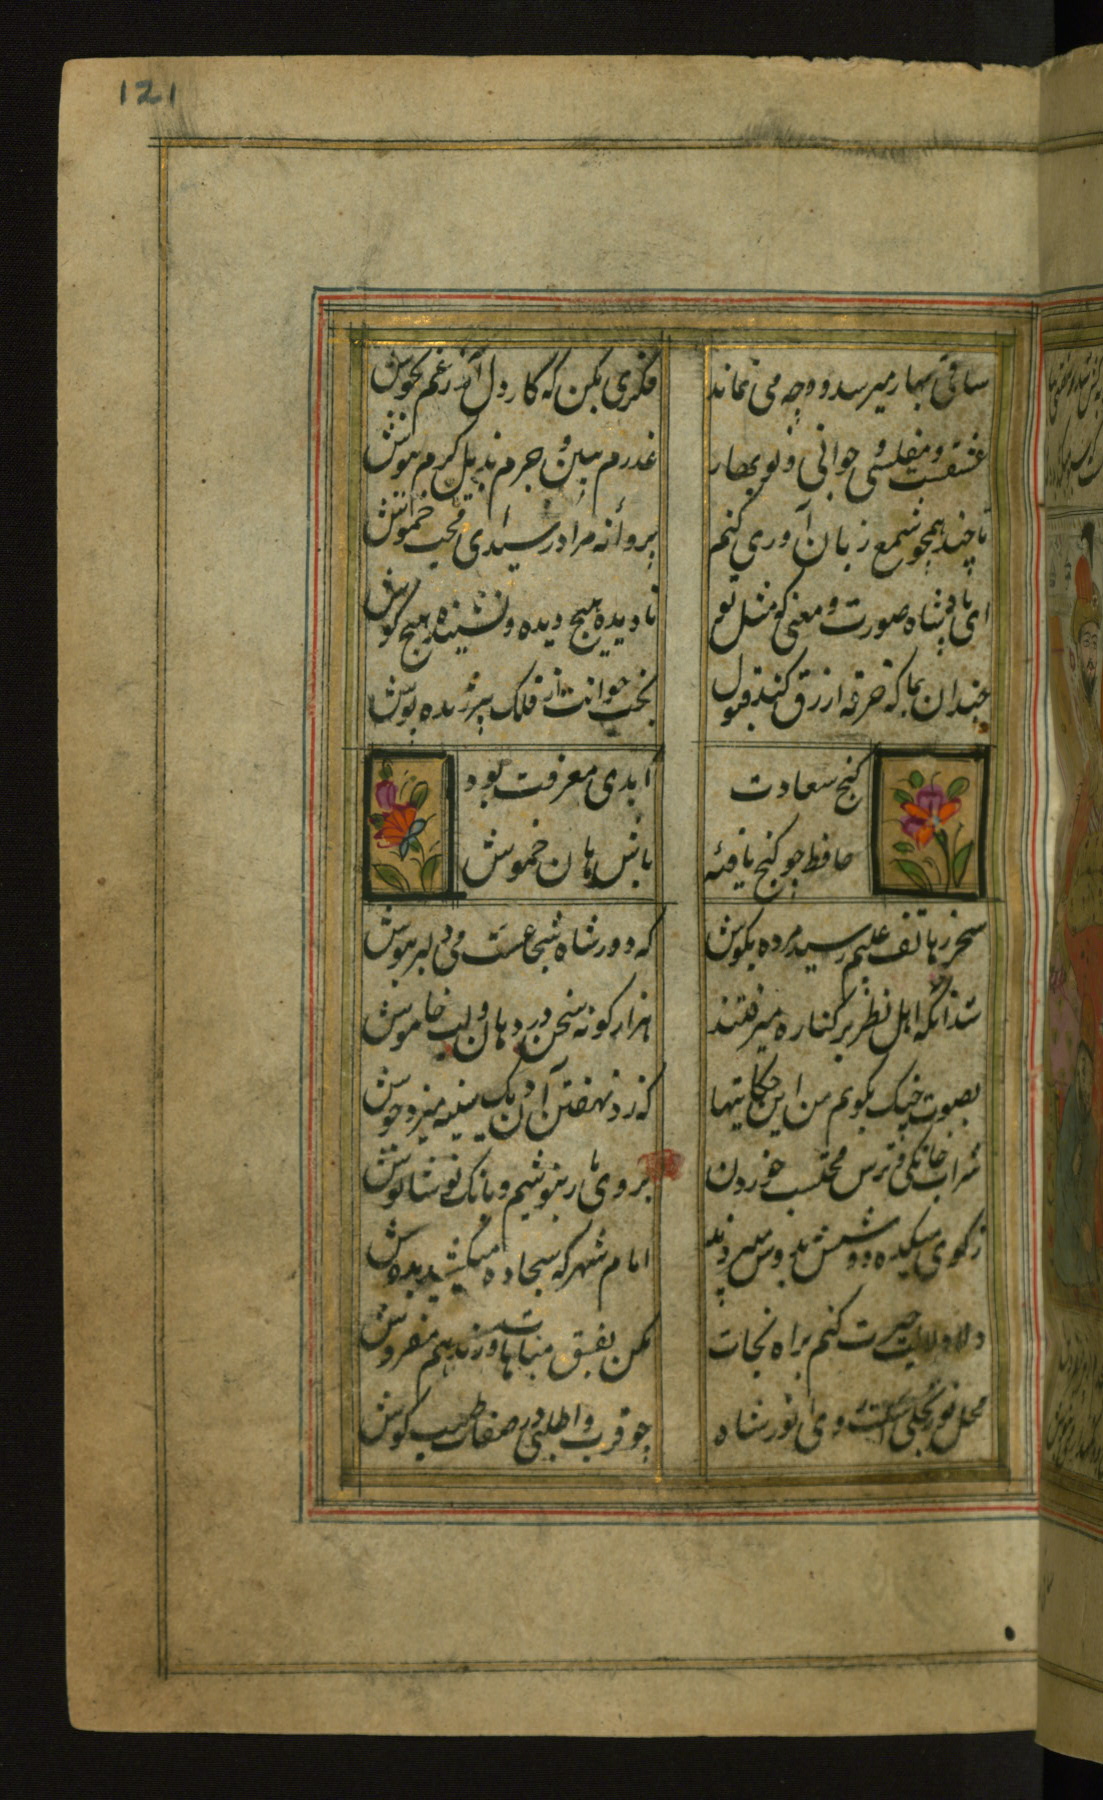 121
ساقی بهار میرسد و وجه می نماند
فکری بکن که کار دل آمد زغم بجوش
عشقست و مفلسی و جوانی و نوبهار
عذرم ببین و جرم بذیل کرم بپوش
تا چند همچو شمع زبان آوری کنم
پروانه مراد رسید ای محب خموش
ای پادشاه صورت و معنی که مثل تو
نادیده هیچ دیده و نشنیده هیچ گوش
چندان بما که خرقه ازرق کند قبول
بخت جوانت از فلک پیر ژنده پوش
کنج سعادت
ابدی معرفت بود
حافظ چو کنج یافته
باش
خموش
سحر زهاتف غیبم رسید مژده بکوش
که دور شاه شجاعست می دلیر بنوش
شد آنکه اهل نظر بر کناره میرفتند
هزار کونه سخن در دهان و لب خاموش
بصوت چنک بکویم من این حکایتها
که از نهفتن آن دیک سینه میزد جوش
شراب خانکی ترس محتسب خوردن
بروی یار بنوشیم و بانک نوشانوش
زکوی میکده دوشش بدوش میبردند
امام شهر که سجاده میکشید بدوش
دلا دلالت خیرت کنم براه نجات
مکن بفسق مباهات و زهد هم مفروش
محل نور تجلیست رای انور شاه
چو قرب او طلبی در صفای نیت کوش